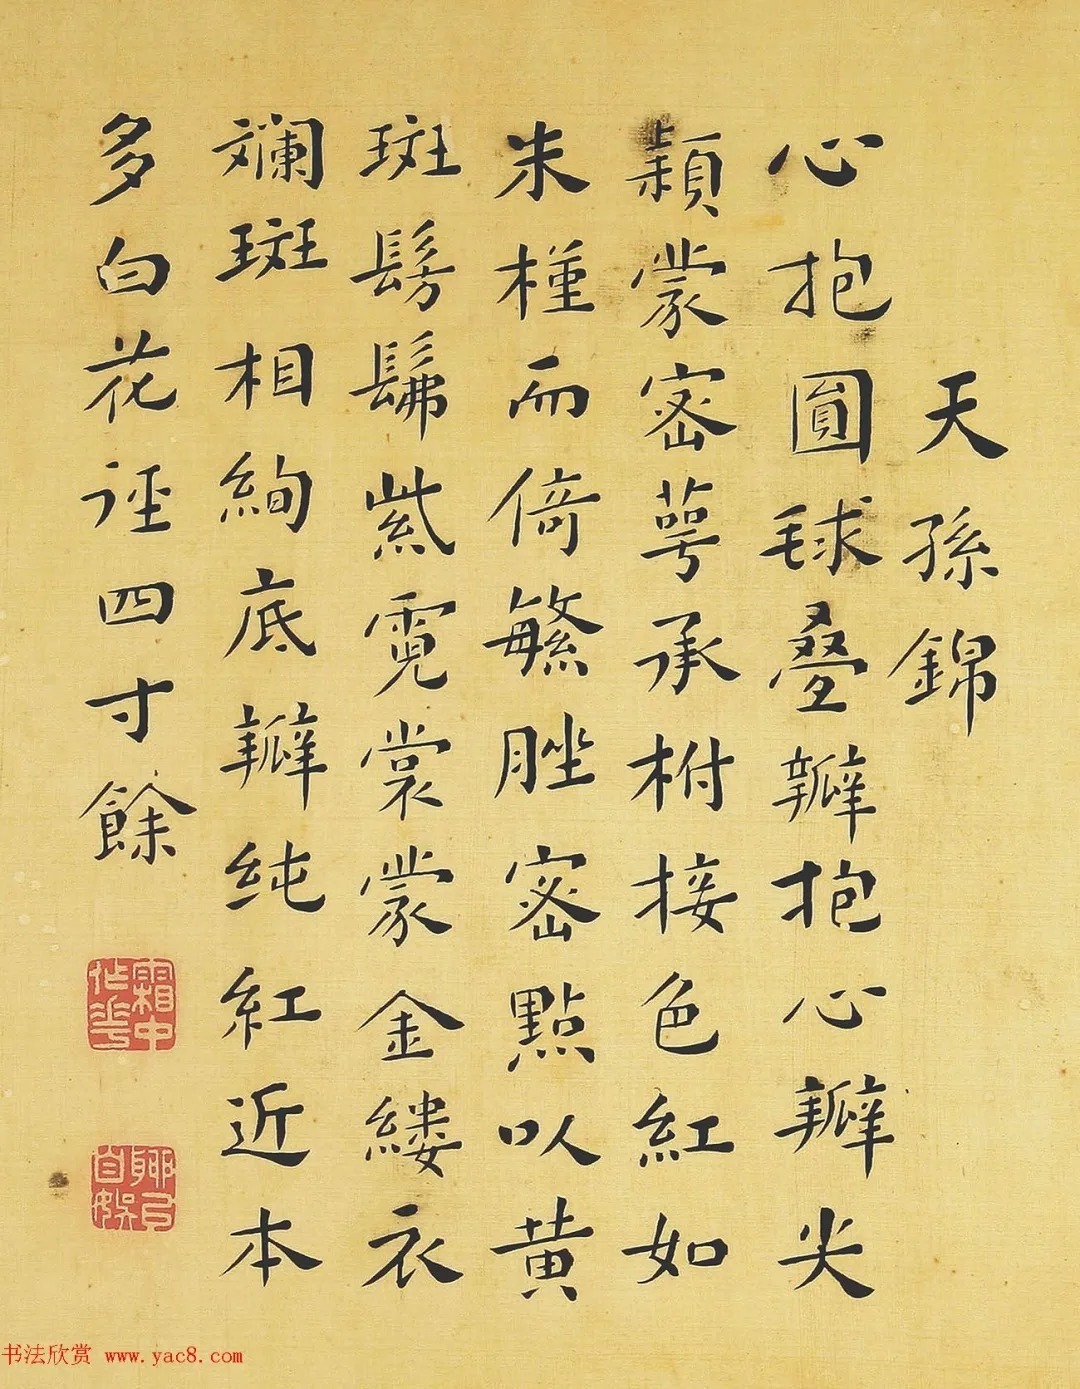 天孫錦
心抱圓毬疊瓣抱心瓣尖
穎蒙密萼承柎接色紅如
朱槿而倚繁脞密點以黄
斑髣髴紫霓裳蒙金縷衣
斕斑相絢底瓣纯紅近本
多白花誙四寸餘
霜中作花
聊以自娱
书法欣赏 www.yac8.com